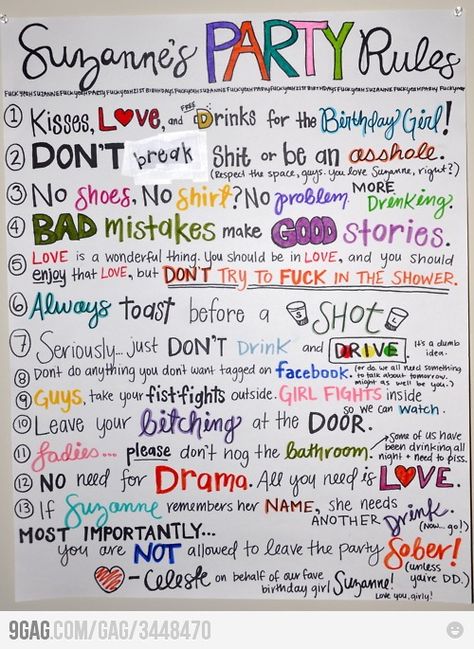 Suzanne's PARTY Rules
① Kisses, L♥ve, and FREE Drinks for the Birthday Girl!
② DON'T break Shit or be an asshole.
(Respect the space, guys. you love Suzanne, right?)
③ No Shoes, No Shirt? No problem. MORE Drenking.
④ BAD mistakes make GOOD stories.
⑤ LOVE is a wonderful thing. You should be in LOVE, and you should
enjoy that LOVE, but DON'T TRY TO FUCK IN THE SHOWER.
⑥ Always toast before a SHOT
⑦ Seriously... just DON'T Drink and DRIVE. It's a dumb idea.
⑧ Dont do anything you don't want tagged on facebook. (or do we all need something to talk about tomorrow. might as well be you.?)
⑨ GUYS, take your fist-fights outside. GIRL FIGHTS inside
so we can watch.
⑩ Leave your bitching at the DOOR.
⑪ Ladies... please don't hog the bathroom. Some of us have been drinking all night + need to piss.
⑫ No need for Drama. All you need is L♥VE.
⑬ If Suzanne remembers her NAME, she needs
ANOTHER Drink. (Now... go!)
MOST IMPORTANTLY...
you are NOT allowed to leave the party Sober!
(unless you're DD.)
♥ - Celeste on behalf of our fave birthday girl Suzanne!
Love you, girly!
9GAG.COM/GAG/3448470